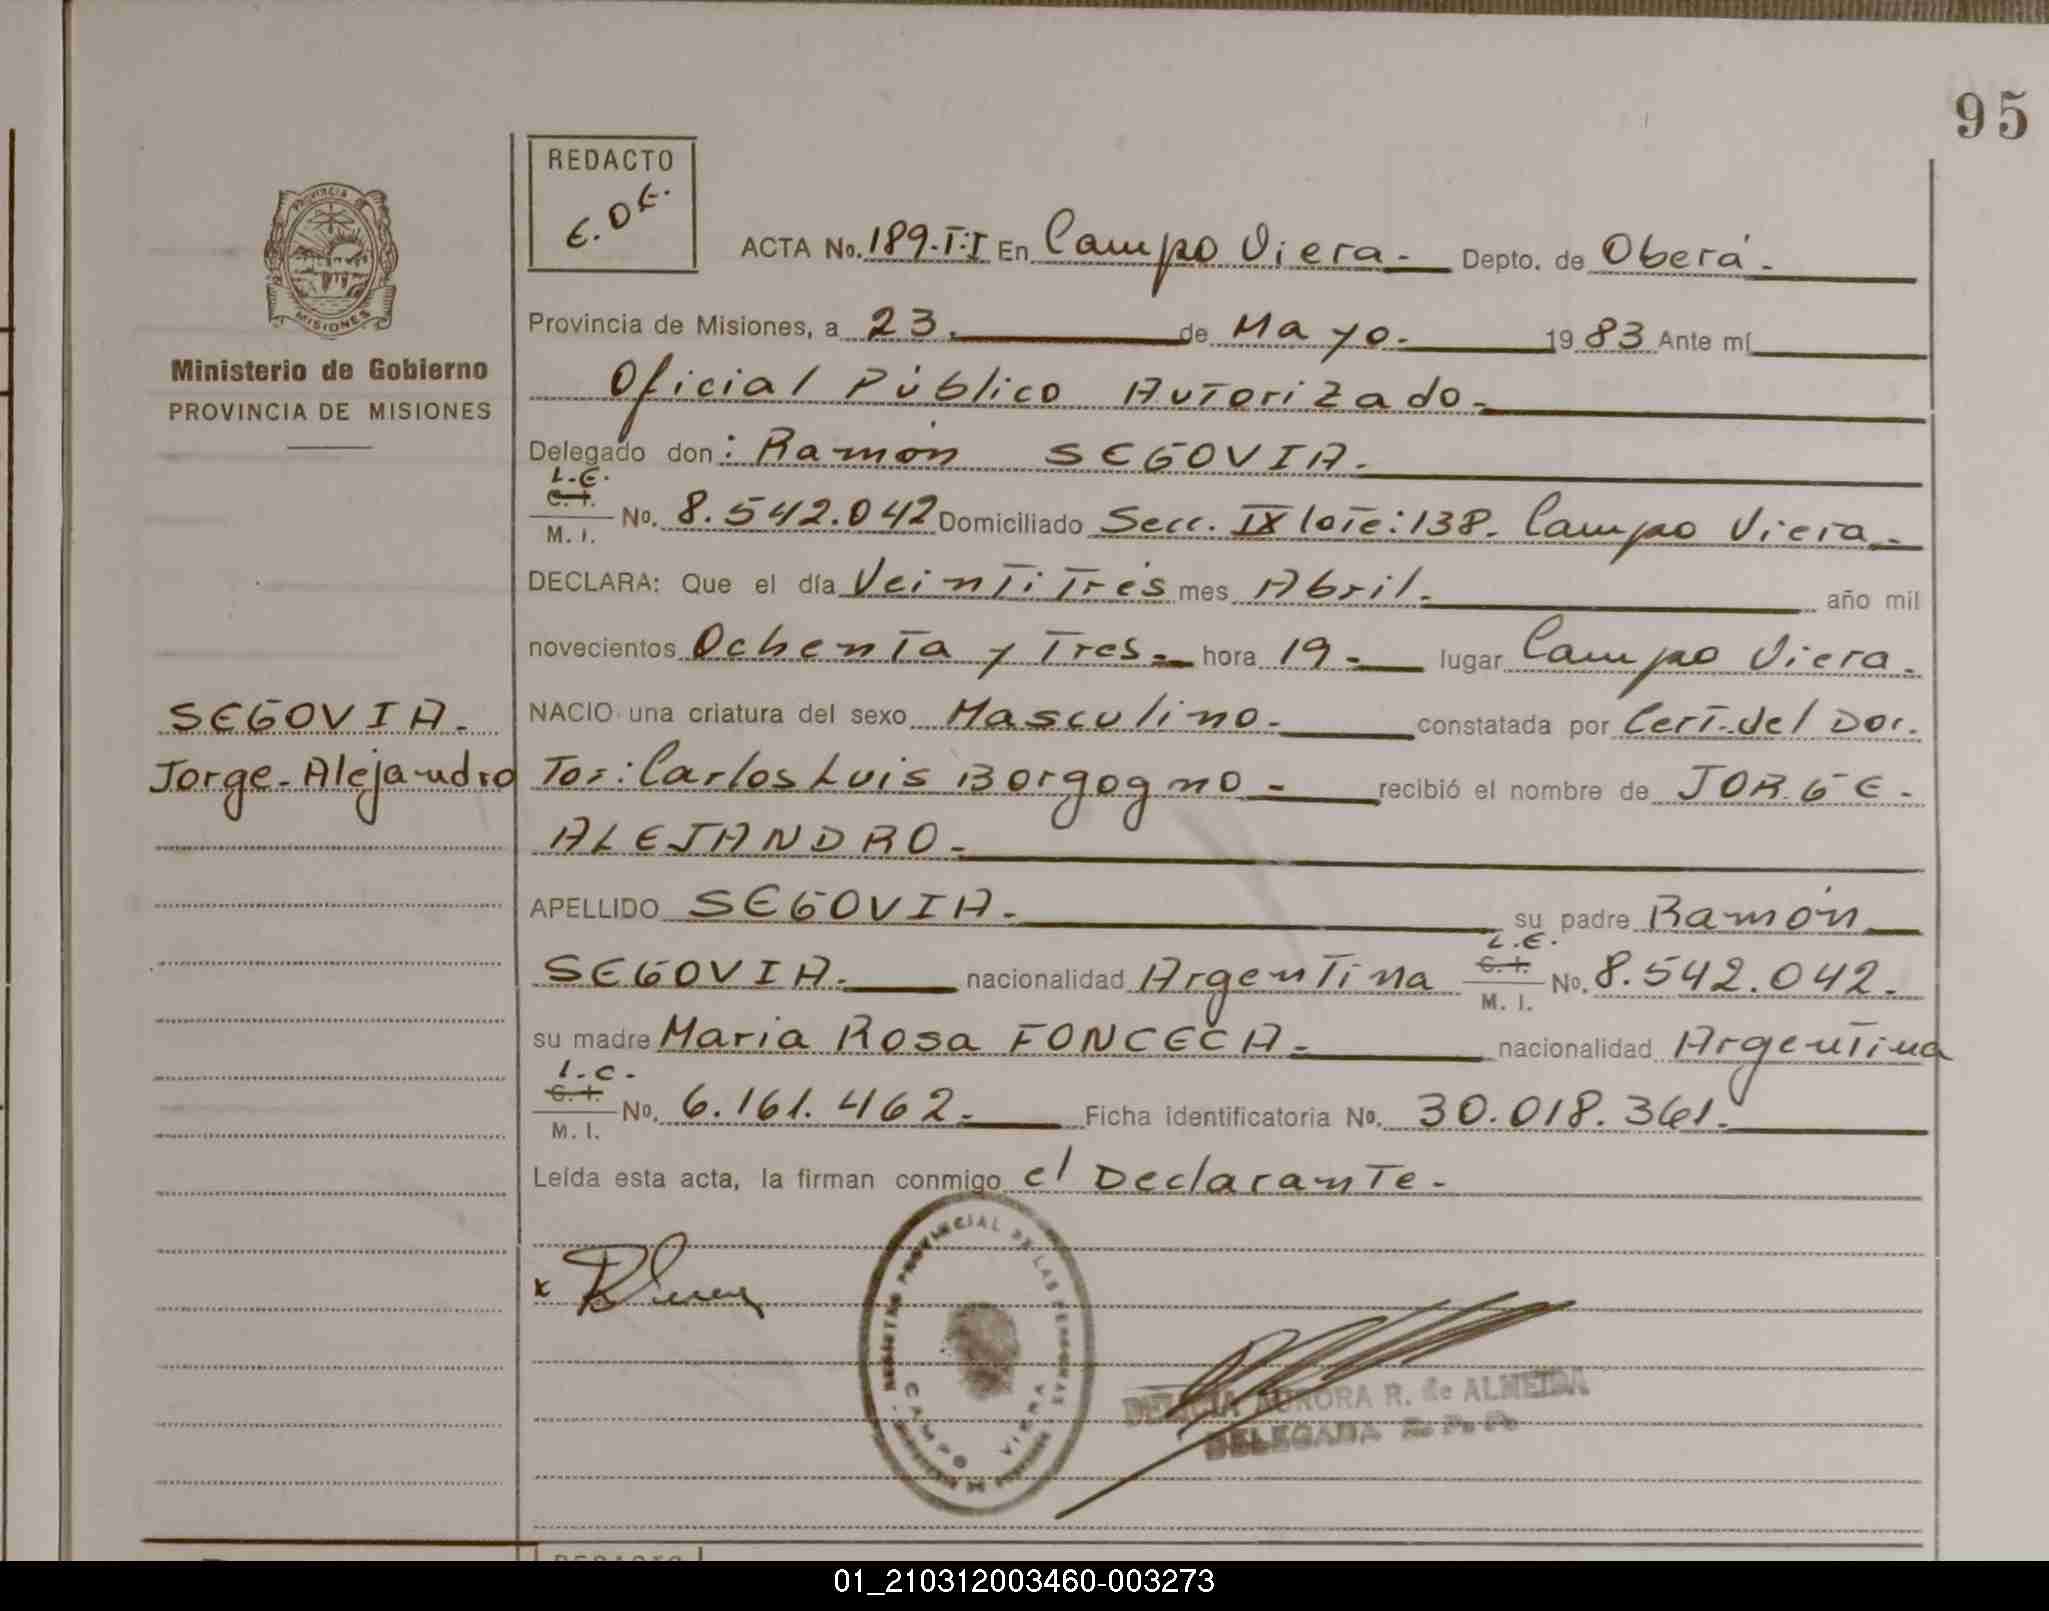 95
PROVINCIA DE
MISIONES
Ministerio de Gobierno
PROVINCIA DE MISIONES
SEGOVIA.
Jorge-Alejandro
REDACTO
E.D.E.
ACTA No. 189-T:I En Campo Viera.- Depto. de Oberá.-
Provincia de Misiones, a 23. de Mayo. 1983 Ante mí
Oficial Público Autorizado.-
Delegado don: Ramón SEGOVIA.
L.E.
C. I.
M. I. No. 8.542.042 Domiciliado Secc. IX lote: 138. Campo Viera.-
DECLARA: Que el día Veintitrés mes Abril. año mil
novecientos Ochenta y Tres.- hora 19.- lugar Campo Viera.
NACIO una criatura del sexo Masculino. constatada por Cert. del Doc.
Tor: Carlos Luis Borgogno - recibió el nombre de JORGE.
ALEJANDRO.-
APELLIDO SEGOVIA. su padre Ramón
SEGOVIA. nacionalidad Argentina L.E. C. I. M. I. No. 8.542.042.
su madre Maria Rosa FONCECA.- nacionalidad Argentina
L.C.
C. I.
M. I. No. 6.161.462. Ficha identificatoria No. 30.018.361.
Leída esta acta, la firman conmigo el Declarante.-
REGISTRO PROVINCIAL DE LAS PERSONAS
CAMPO VIERA
AURORA R. de ALMEIDA
DELEGADA R. P. P.
REDACTO
01_210312003460-003273